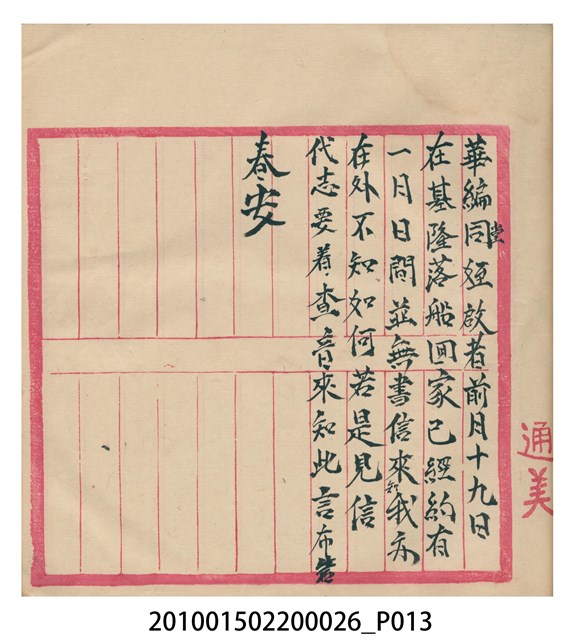 通美
華編同堂姪啟者前月十九日
在基隆落船囬家已經約有
一月日間並無書信來知我亦
在外不知如何若是見信
代志要着查音來知此言布
春安
201001502200026_P013